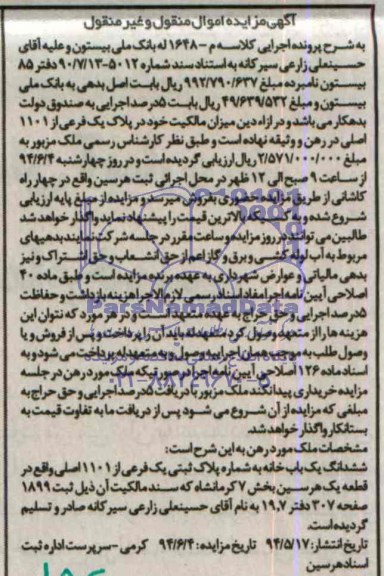 آگهی مزایده اموال منقول و غیر منقول
به شرح پرونده اجرایی کلاسه م - ۱۶۴۸ له بانک ملی بیستون و علیه آقای
حسینعلی زارعی سیرکانه به استناد سند شماره ۵۰۱۲-۹۰/۷/۱۳ دفتر ۸۵
بیستون نامبرده مبلغ ۹۹۲/۷۹۰/۶۳۷ ریال بابت اصل بدهی به بانک ملی
بیستون و مبلغ ۴۹/۶۳۹/۵۳۲ ریال بابت ۵درصد اجرایی به صندوق دولت
بدهکار می باشد و در ازاء دین میزان مالکیت خود در پلاک یک فرعی از ۱۱۰۱
اصلی در رهن و وثیقه نهاده است و طبق نظر کارشناس رسمی ملک مزبور به
مبلغ ۲/۵۷۱/۰۰۰/۰۰۰ ریال ارزیابی گردیده است و در روز چهارشنبه ۹۴/۶/۴
از ساعت ۹ صبح الی ۱۲ ظهر در محل اجرائی ثبت هرسین واقع در چهار راه
کاشانی از طریق مزایده حضوری بفروش میرسد و مزایده از مبلغ پایه ارزیابی
شروع شده و به کسانیکه بالاترین قیمت را پیشنهاد نماید واگذار خواهد شد
طالبین می توانند در روز مزایده و ساعت مقرر در جلسه شرکت نمایند بدهیهای
مربوط به آب لوله کشی و برق و گاز اعم از حق انشعاب و حق اشتراک و نیز
بدهی مالیاتی و عوارض شهرداری به عهده برنده مزایده است و طبق ماده ۴۰
اصلاحی آیین نامه اجرا مفاد اسناد رسمی لازم الاجرا هزینه بازداشت و حفاظت
۵درصد اجرایی و حق حراج به عهده متعهد است و در هر مورد که نتوان این
هزینه ها را از متعهد وصول کرد متعهدله باید آن را پرداخت و پس از فروش و یا
وصول طلب به موجب همان اجراییه وصول و به متعهدله پرداخت می شود و به
اسناد ماده ۱۲۶ اصلاحی آیین نامه اجرا در صورتیکه ملک مورد رهن در جلسه
مزایده خریداری پیدا نکند ملک مزبور با دریافت ۵درصد اجرایی و حق حراج به
مبلغی که مزایده از آن شروع می شود پس از دریافت ما به تفاوت قیمت به
بستانکار واگذار خواهد شد.
مشخصات ملک مورد رهن به این شرح است:
ششدانگ یک باب خانه به شماره پلاک ثبتی یک فرعی از ۱۱۰۱ اصلی واقع در
قطعه یک هرسین بخش ۷ کرمانشاه که سند مالکیت آن ذیل ثبت ۱۸۹۹
صفحه ۳۰۷ دفتر ۱۹٫۷ به نام آقای حسینعلی زارعی سیرکانه صادر و تسلیم
گردیده است.
تاریخ انتشار: ۹۴/۵/۱۷ تاریخ مزایده: ۹۴/۶/۴ کرمی - سرپرست اداره ثبت
اسناد هرسین
ParsNamadData
۰۲۱-۸۸۳۴۹۶۷۰-۵